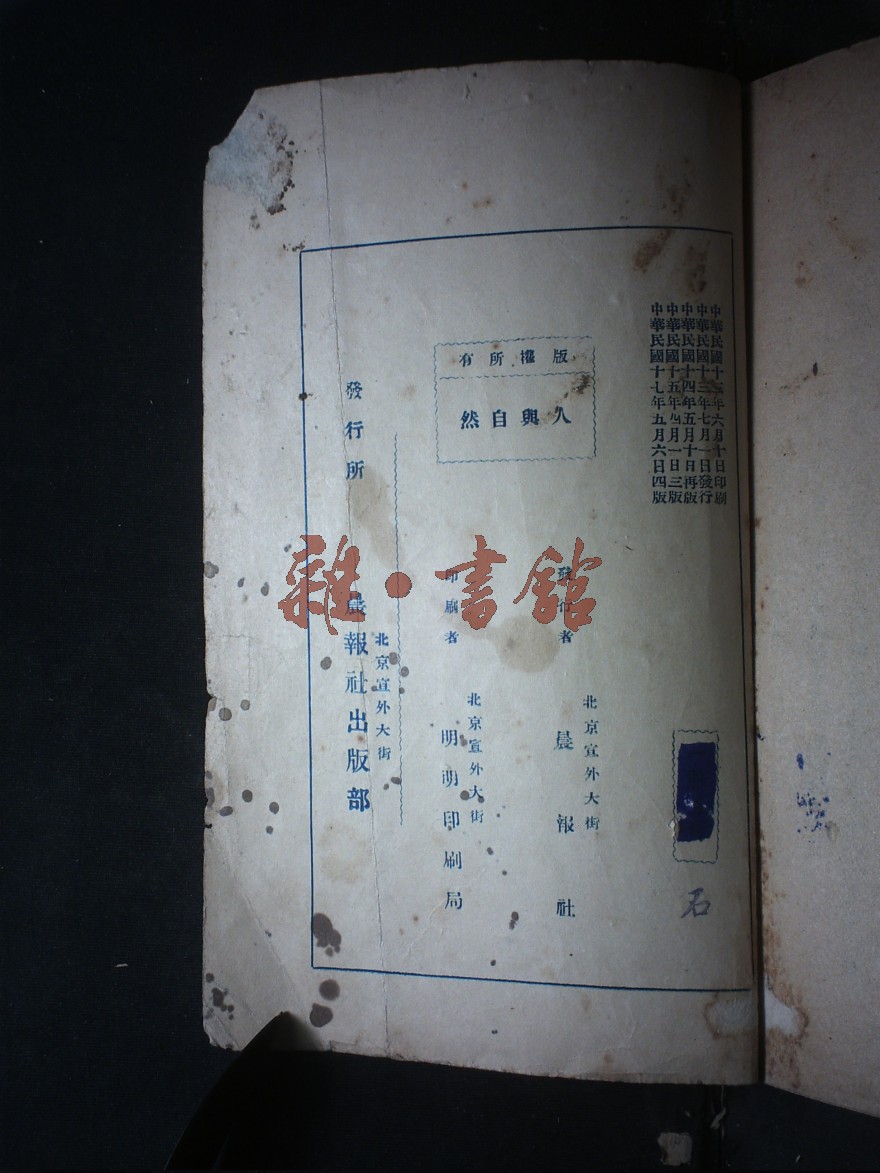 中華民國十三年六月十日印刷
中華民國十三年七月一日發行
中華民國十四年五月十日再版
中華民國十五年四月一日三版
中華民國十七年五月六日四版
石
版權所有
人與自然
發行者
北京宣外大街
晨報社
印刷者
北京宣外大街
明明印刷局
發行所
北京宣外大街
晨報社出版部
雜·書館